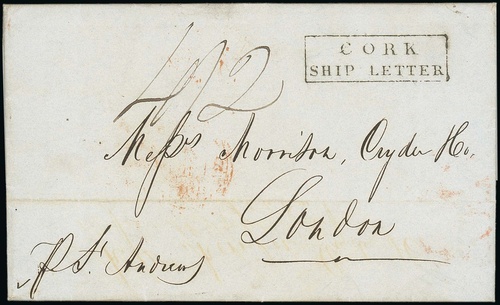 CORK
SHIP LETTER
Messrs Morrison, Cryder & Co.
London
P St Andrew